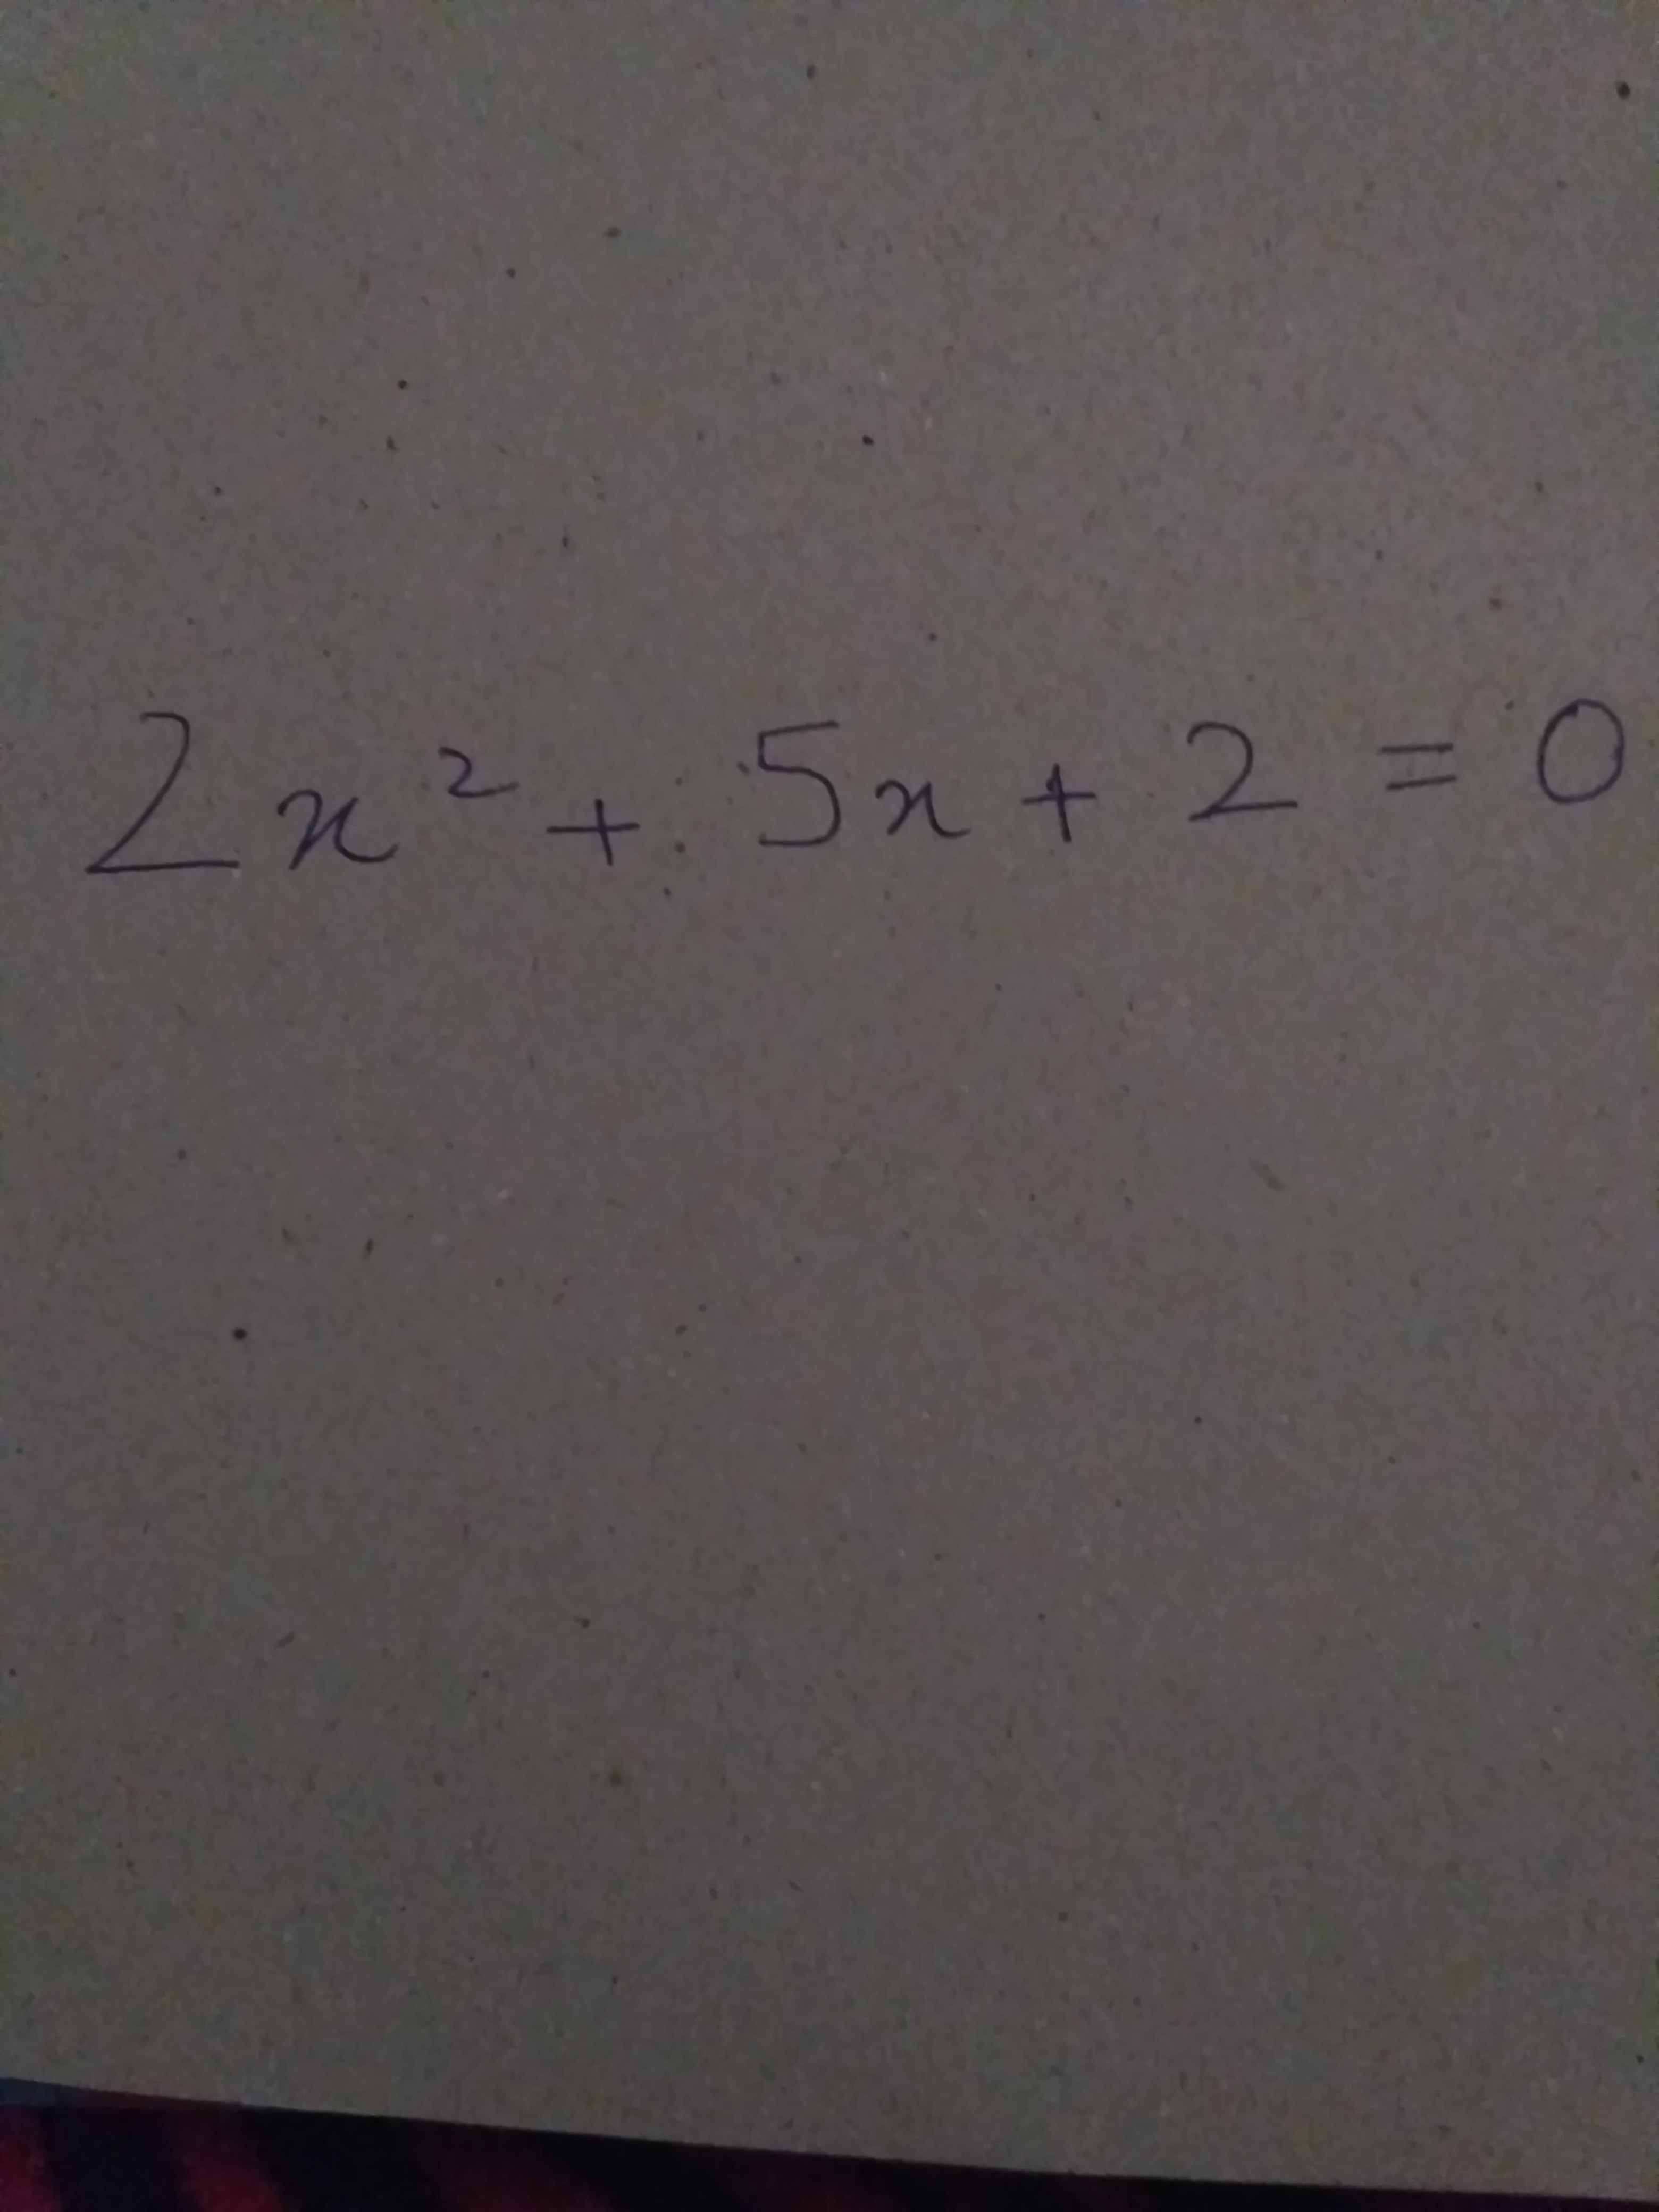 2x² + 5x + 2 = 0